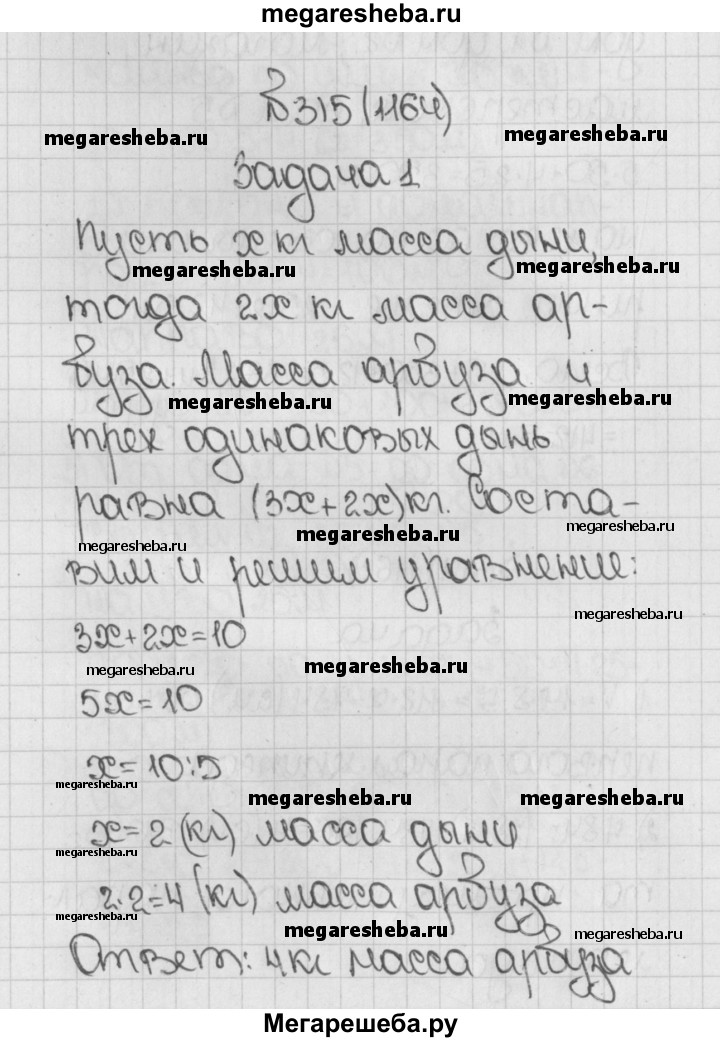 megaresheba.ru
№315 (1164)
megaresheba.ru megaresheba.ru
Задача 1
Пусть x кг масса дыни,
megaresheba.ru megaresheba.ru
тогда 2x кг масса ар-
буза. Масса арбуза и
megaresheba.ru megaresheba.ru
трех одинаковых дынь
равна (3x+2x)кг. Соста-
megaresheba.ru megaresheba.ru megaresheba.ru
вим и решим уравнение:
megaresheba.ru
3x+2x=10
megaresheba.ru megaresheba.ru
5x=10
x=10:5
megaresheba.ru megaresheba.ru megaresheba.ru
x=2 (кг) масса дыни
megaresheba.ru
2·2=4 (кг) масса арбуза
megaresheba.ru megaresheba.ru megaresheba.ru
Ответ: 4кг масса арбуза
Мегарешеба.ру